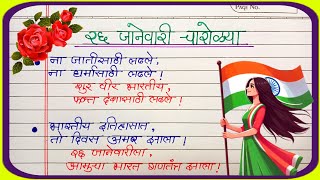 Page No.
२६ जानेवारी चारोळ्या
ना जातीसाठी लढले,
ना धर्मासाठी लढले!
शूर वीर भारतीय,
फक्त देशासाठी लढले!
भारतीय इतिहासात,
तो दिवस अमर झाला!
२६ जानेवारीला,
आमुचा भारत गणतंत्र झाला!